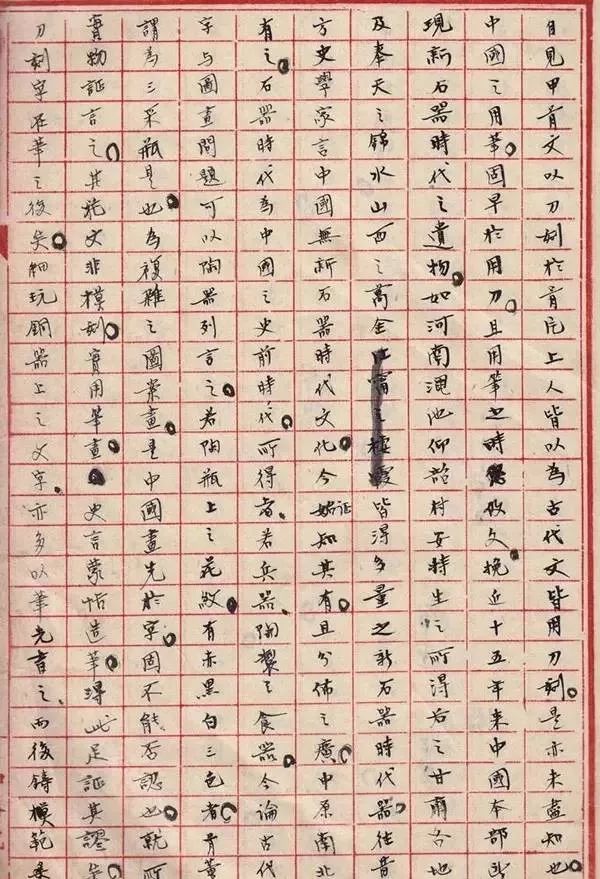 目見甲骨文以刀刻於骨片上人皆以為古代文皆用刀刻。是亦未盡知也
中國之用筆。固早於用刀。且用筆之時文。挽近十五年來中國本部
現新石器時代之遺物。如河南澠池仰韶村安特生之所得后之甘肅各地
及奉天之錦水山西之萬金甯之棲霞皆得多量之新石器時代器。往昔
方史學家言中國無新石器時代文化。今始証知其有。且分佈之廣。中原南北
有之。石器時代為中國之史前時代。所得者、若兵器、陶製之食器。今論古代
字与圖畫問題可以陶器列言之。若陶瓶上之花紋。有赤黑白三色者。骨董
謂為三采瓶是也。為複雜之圖案畫。是中國畫先於字。固不能否認也。就所
實物証言之。其花文非模刻。實用筆畫。史言蒙恬造筆。得此足証其謬矣。
刀刻字在筆之後矣。細玩銅器上之文字、亦多以筆先書之、而後鑄模範